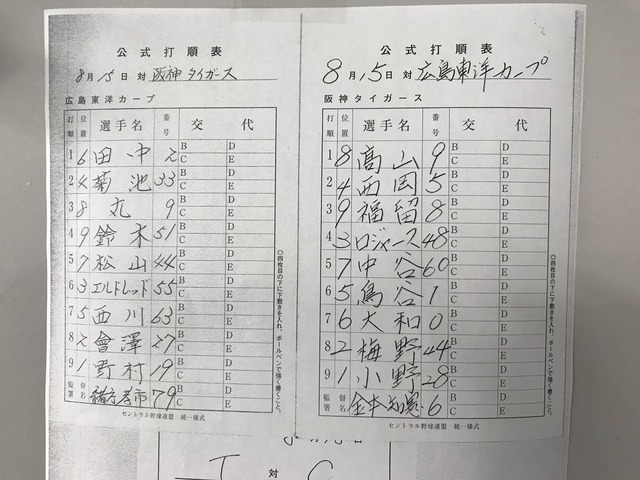 公式打順表
8月15日 対 阪神タイガース
広島東洋カープ
打順 位置 選手名 番号 交代
1 6 田中 2 B D C E
2 4 菊池 33 B D C E
3 8 丸 9 B D C E
4 9 鈴木 51 B D C E
5 7 松山 44 B D C E
6 3 エルドレッド 55 B D C E
7 5 西川 63 B D C E
8 2 會澤 27 B D C E
9 1 野村 19 B D C E
監督署名 緒方孝市 79 B D C E
セントラル野球連盟 統一様式
◎四枚目の下に下敷きを入れ、ボールペンで強く書くこと。
公式打順表
8月15日 対 広島東洋カープ
阪神タイガース
打順 位置 選手名 番号 交代
1 8 高山 9 B D C E
2 4 西岡 5 B D C E
3 9 福留 8 B D C E
4 3 ロジャース 48 B D C E
5 7 中谷 60 B D C E
6 5 鳥谷 1 B D C E
7 6 大和 0 B D C E
8 2 梅野 44 B D C E
9 1 小野 28 B D C E
監督署名 金本知憲 6 B D C E
セントラル野球連盟 統一様式
◎四枚目の下に下敷きを入れ、ボールペンで強く書くこと。
T 対 C